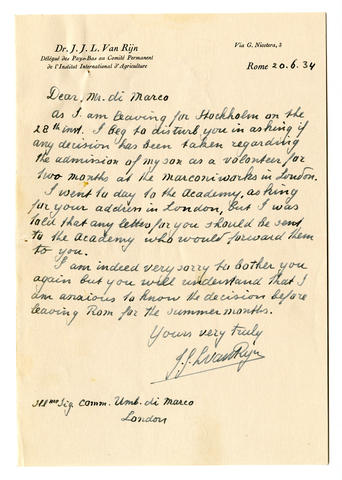 Dr. J. J. L. Van Rijn
Délégué des Pays-Bas au Comité Permanent
de l'Institut International d'Agriculture
Via G. Nicotera, 5
Rome 20.6.34
Dear, Mr. di Marco
as I am leaving for Stockholm on the
28th inst. I beg to disturb you in asking if
any decision has been taken regarding
the admission of my son as a volunteer for
two months at the marconiworks in London.
I went to day to the Academy, asking
for your address in London, but I was
told that any letter for you should be sent
to the Academy who would forward them
to you.
I am indeed very sorry to bother you
again but you will understand that I
am anxious to know the decision before
leaving Rom for the summer months.
Yours very truly
J.J.L. van Rijn
Ill mo Sig. Comm. Umb. di Marco
London